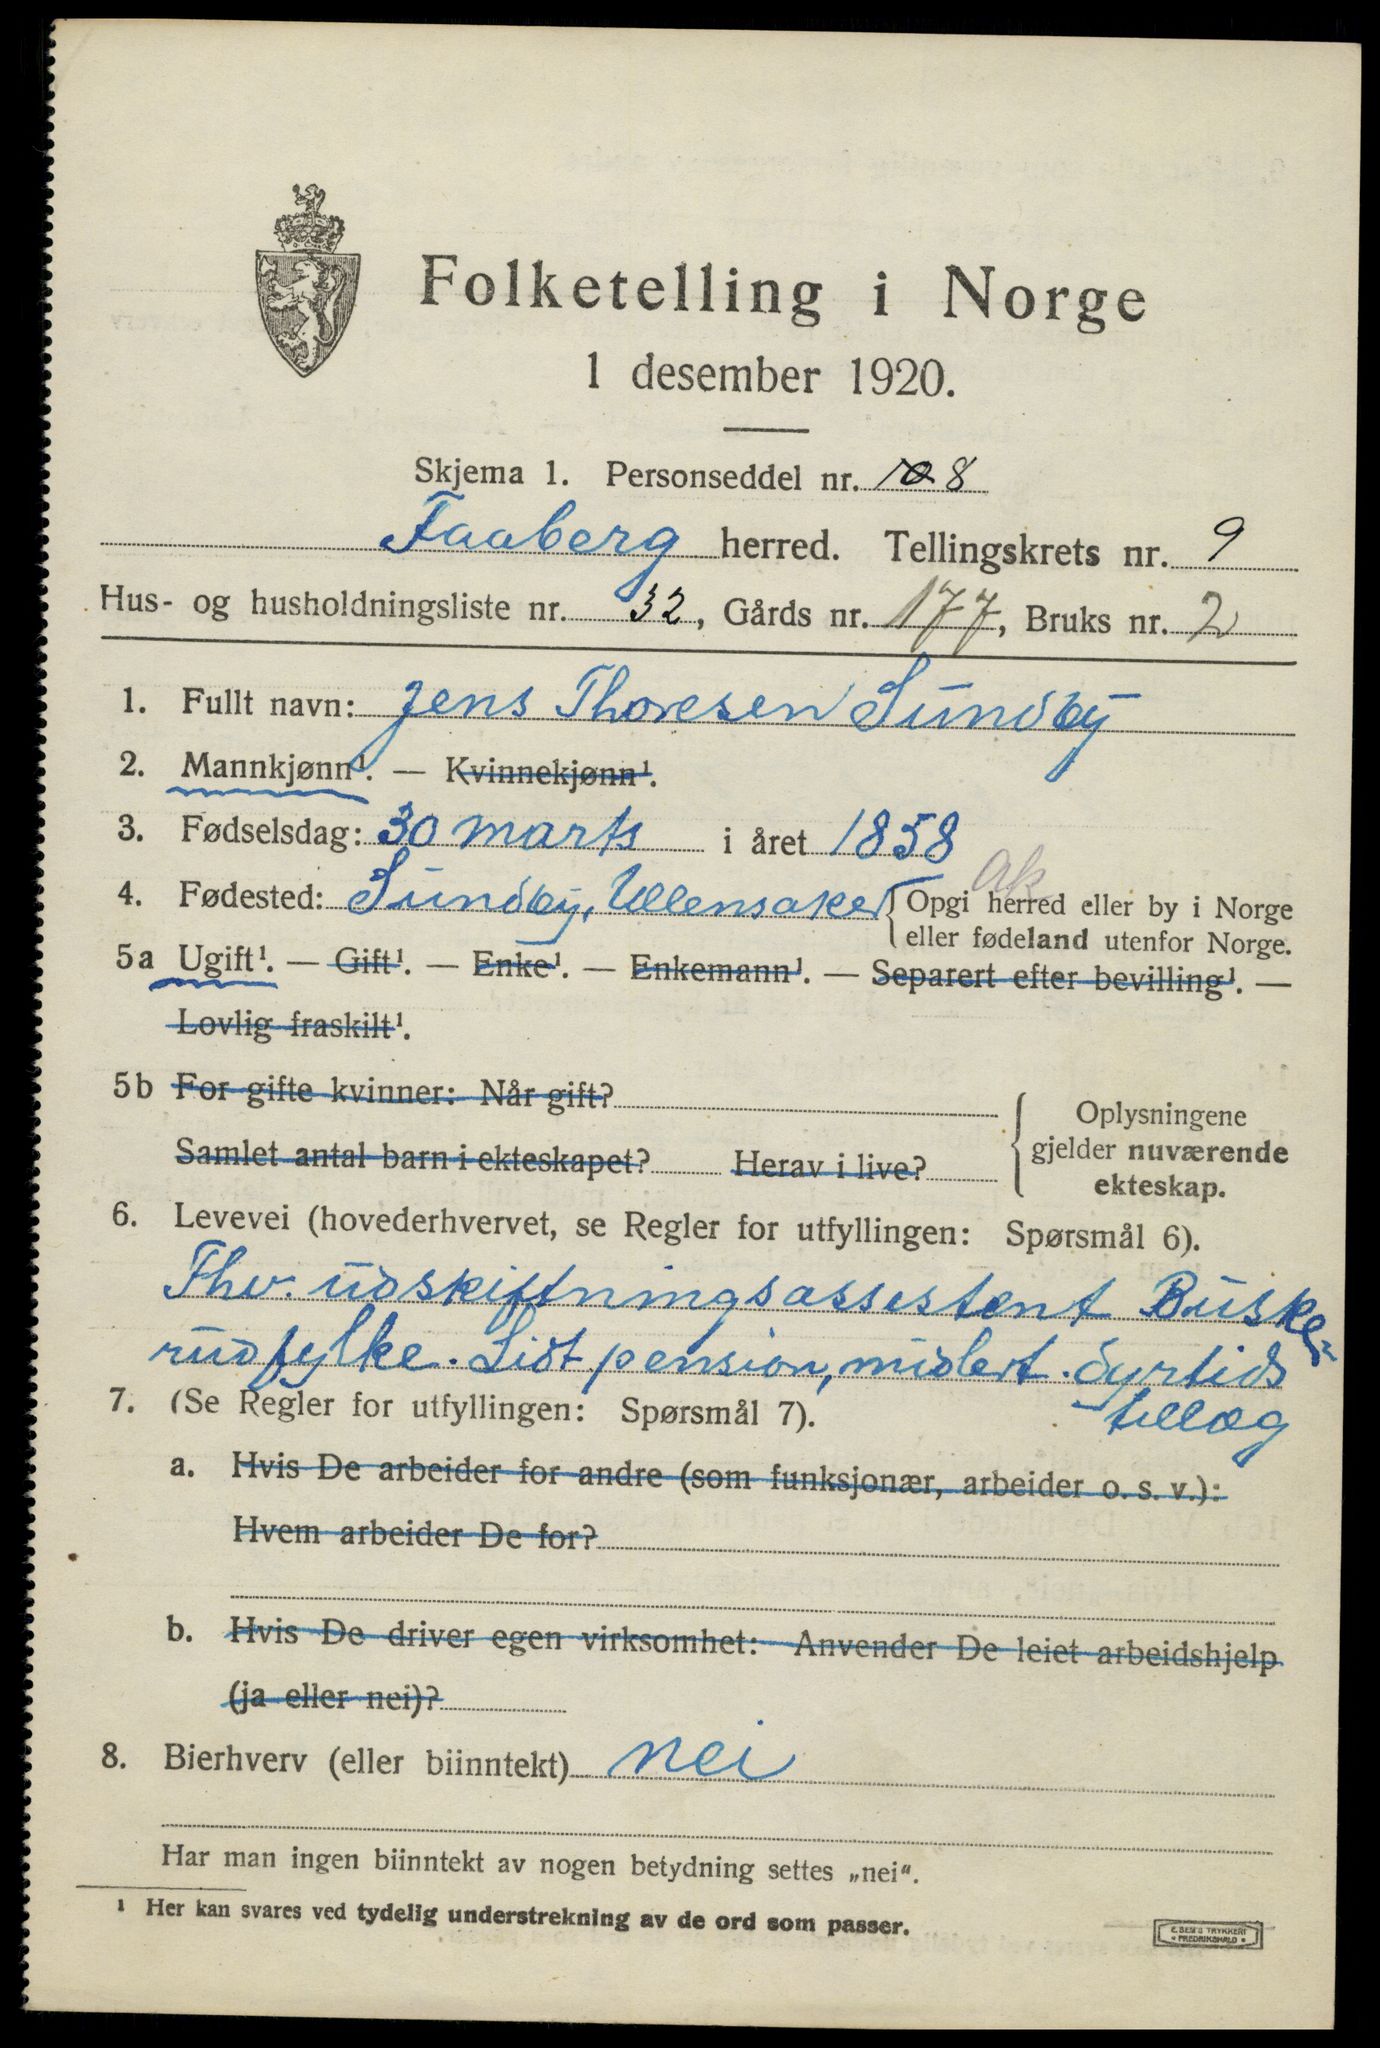 Folketelling i Norge
1 desember 1920.
Skjema 1. Personseddel nr. 8
Faaberg herred. Tellingskrets nr. 9
Hus- og husholdningsliste nr. 32, Gårds nr. 177, Bruks nr. 2
1. Fullt navn: Jens Thoresen Sundby
2. Mannkjønn¹. — Kvinnekjønn¹.
3. Fødselsdag: 30 marts i året 1858
Ak
4. Fødested: Sundby, Ullensaker { Opgi herred eller by i Norge
eller fødeland utenfor Norge.
5a Ugift¹. — Gift¹. — Enke¹. — Enkemann¹. — Separert efter bevilling¹. —
Lovlig fraskilt¹.
5b For gifte kvinner: Når gift?
Samlet antal barn i ekteskapet? Herav i live?
{ Oplysningene
gjelder nuværende
ekteskap.
6. Levevei (hovederhvervet, se Regler for utfyllingen: Spørsmål 6).
Fhv. udskiftningsassestent Buske-
rudfylke. Lidt pension, midlert. dyrtids
tillæg
7. (Se Regler for utfyllingen: Spørsmål 7).
a. Hvis De arbeider for andre (som funksjonær, arbeider o. s. v.):
Hvem arbeider De for?
b. Hvis De driver egen virksomhet: Anvender De leiet arbeidshjelp
(ja eller nei)?
8. Bierhverv (eller biinntekt) nei
Har man ingen biinntekt av nogen betydning settes „nei“.
¹ Her kan svares ved tydelig understrekning av de ord som passer.
E. SEM'S TRYKKERI
FREDRIKSHALD